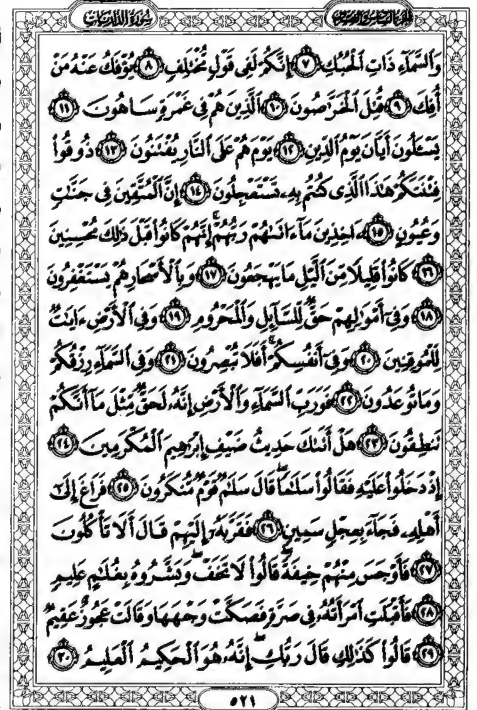 سورة الذاريات
الجزء السادس والعشرون
وَالسَّمَاءِ ذَاتِ الْحُبُكِ ٧ إِنَّكُمْ لَفِي قَوْلٍ مُّخْتَلِفٍ ٨ يُؤْفَكُ عَنْهُ مَنْ
أُفِكَ ٩ قُتِلَ الْخَرَّاصُونَ ١٠ الَّذِينَ هُمْ فِي غَمْرَةٍ سَاهُونَ ١١
يَسْـَٔلُونَ أَيَّانَ يَوْمُ الدِّينِ ١٢ يَوْمَ هُمْ عَلَى النَّارِ يُفْتَنُونَ ١٣ ذُوقُوا
فِتْنَتَكُمْ هَٰذَا الَّذِي كُنتُم بِهِ تَسْتَعْجِلُونَ ١٤ إِنَّ الْمُتَّقِينَ فِي جَنَّٰتٍ
وَعُيُونٍ ١٥ ءَاخِذِينَ مَا ءَاتَىٰهُمْ رَبُّهُمْ إِنَّهُمْ كَانُوا قَبْلَ ذَٰلِكَ مُحْسِنِينَ
١٦ كَانُوا قَلِيلًا مِّنَ الَّيْلِ مَا يَهْجَعُونَ ١٧ وَبِالْأَسْحَارِ هُمْ يَسْتَغْفِرُونَ
١٨ وَفِي أَمْوَٰلِهِمْ حَقٌّ لِّلسَّائِلِ وَالْمَحْرُومِ ١٩ وَفِي الْأَرْضِ ءَايَٰتٌ
لِّلْمُوقِنِينَ ٢٠ وَفِي أَنفُسِكُمْ أَفَلَا تُبْصِرُونَ ٢١ وَفِي السَّمَاءِ رِزْقُكُمْ
وَمَا تُوعَدُونَ ٢٢ فَوَرَبِّ السَّمَاءِ وَالْأَرْضِ إِنَّهُ لَحَقٌّ مِّثْلَ مَا أَنَّكُمْ
تَنطِقُونَ ٢٣ هَلْ أَتَىٰكَ حَدِيثُ ضَيْفِ إِبْرَٰهِيمَ الْمُكْرَمِينَ ٢٤
إِذْ دَخَلُوا عَلَيْهِ فَقَالُوا سَلَٰمًا قَالَ سَلَٰمٌ قَوْمٌ مُّنكَرُونَ ٢٥ فَرَاغَ إِلَىٰ
أَهْلِهِ فَجَاءَ بِعِجْلٍ سَمِينٍ ٢٦ فَقَرَّبَهُ إِلَيْهِمْ قَالَ أَلَا تَأْكُلُونَ
٢٧ فَأَوْجَسَ مِنْهُمْ خِيفَةً قَالُوا لَا تَخَفْ وَبَشَّرُوهُ بِغُلَٰمٍ عَلِيمٍ
٢٨ فَأَقْبَلَتِ امْرَأَتُهُ فِي صَرَّةٍ فَصَكَّتْ وَجْهَهَا وَقَالَتْ عَجُوزٌ عَقِيمٌ
٢٩ قَالُوا كَذَٰلِكِ قَالَ رَبُّكِ إِنَّهُ هُوَ الْحَكِيمُ الْعَلِيمُ ٣٠
٥٢١